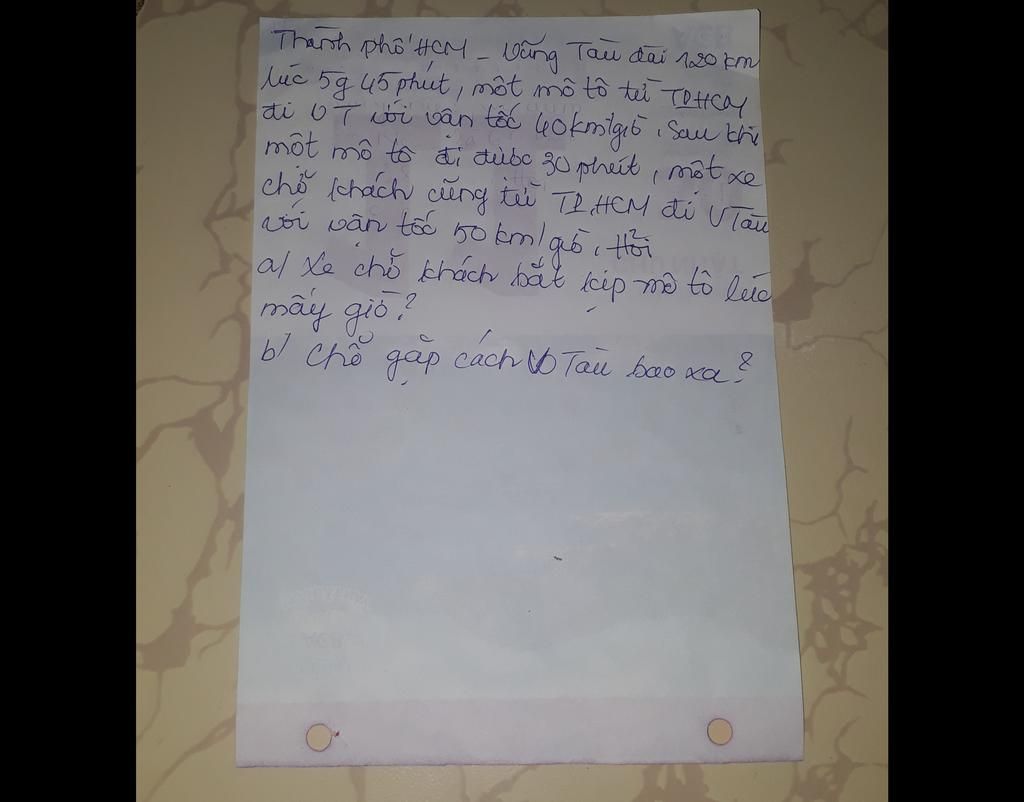 Thành phố HCM - Vũng Tàu dài 120 km
lúc 5g 45 phút, một mô tô từ TP.HCM
đi VT với vận tốc 40 km/giờ. Sau khi
một mô tô đi được 30 phút, một xe
chở khách cũng từ TP.HCM đi VTàu
với vận tốc 50 km/giờ. Hỏi
a/ Xe chở khách bắt kịp mô tô lúc
mấy giờ?
b/ Chỗ gặp cách VTàu bao xa?